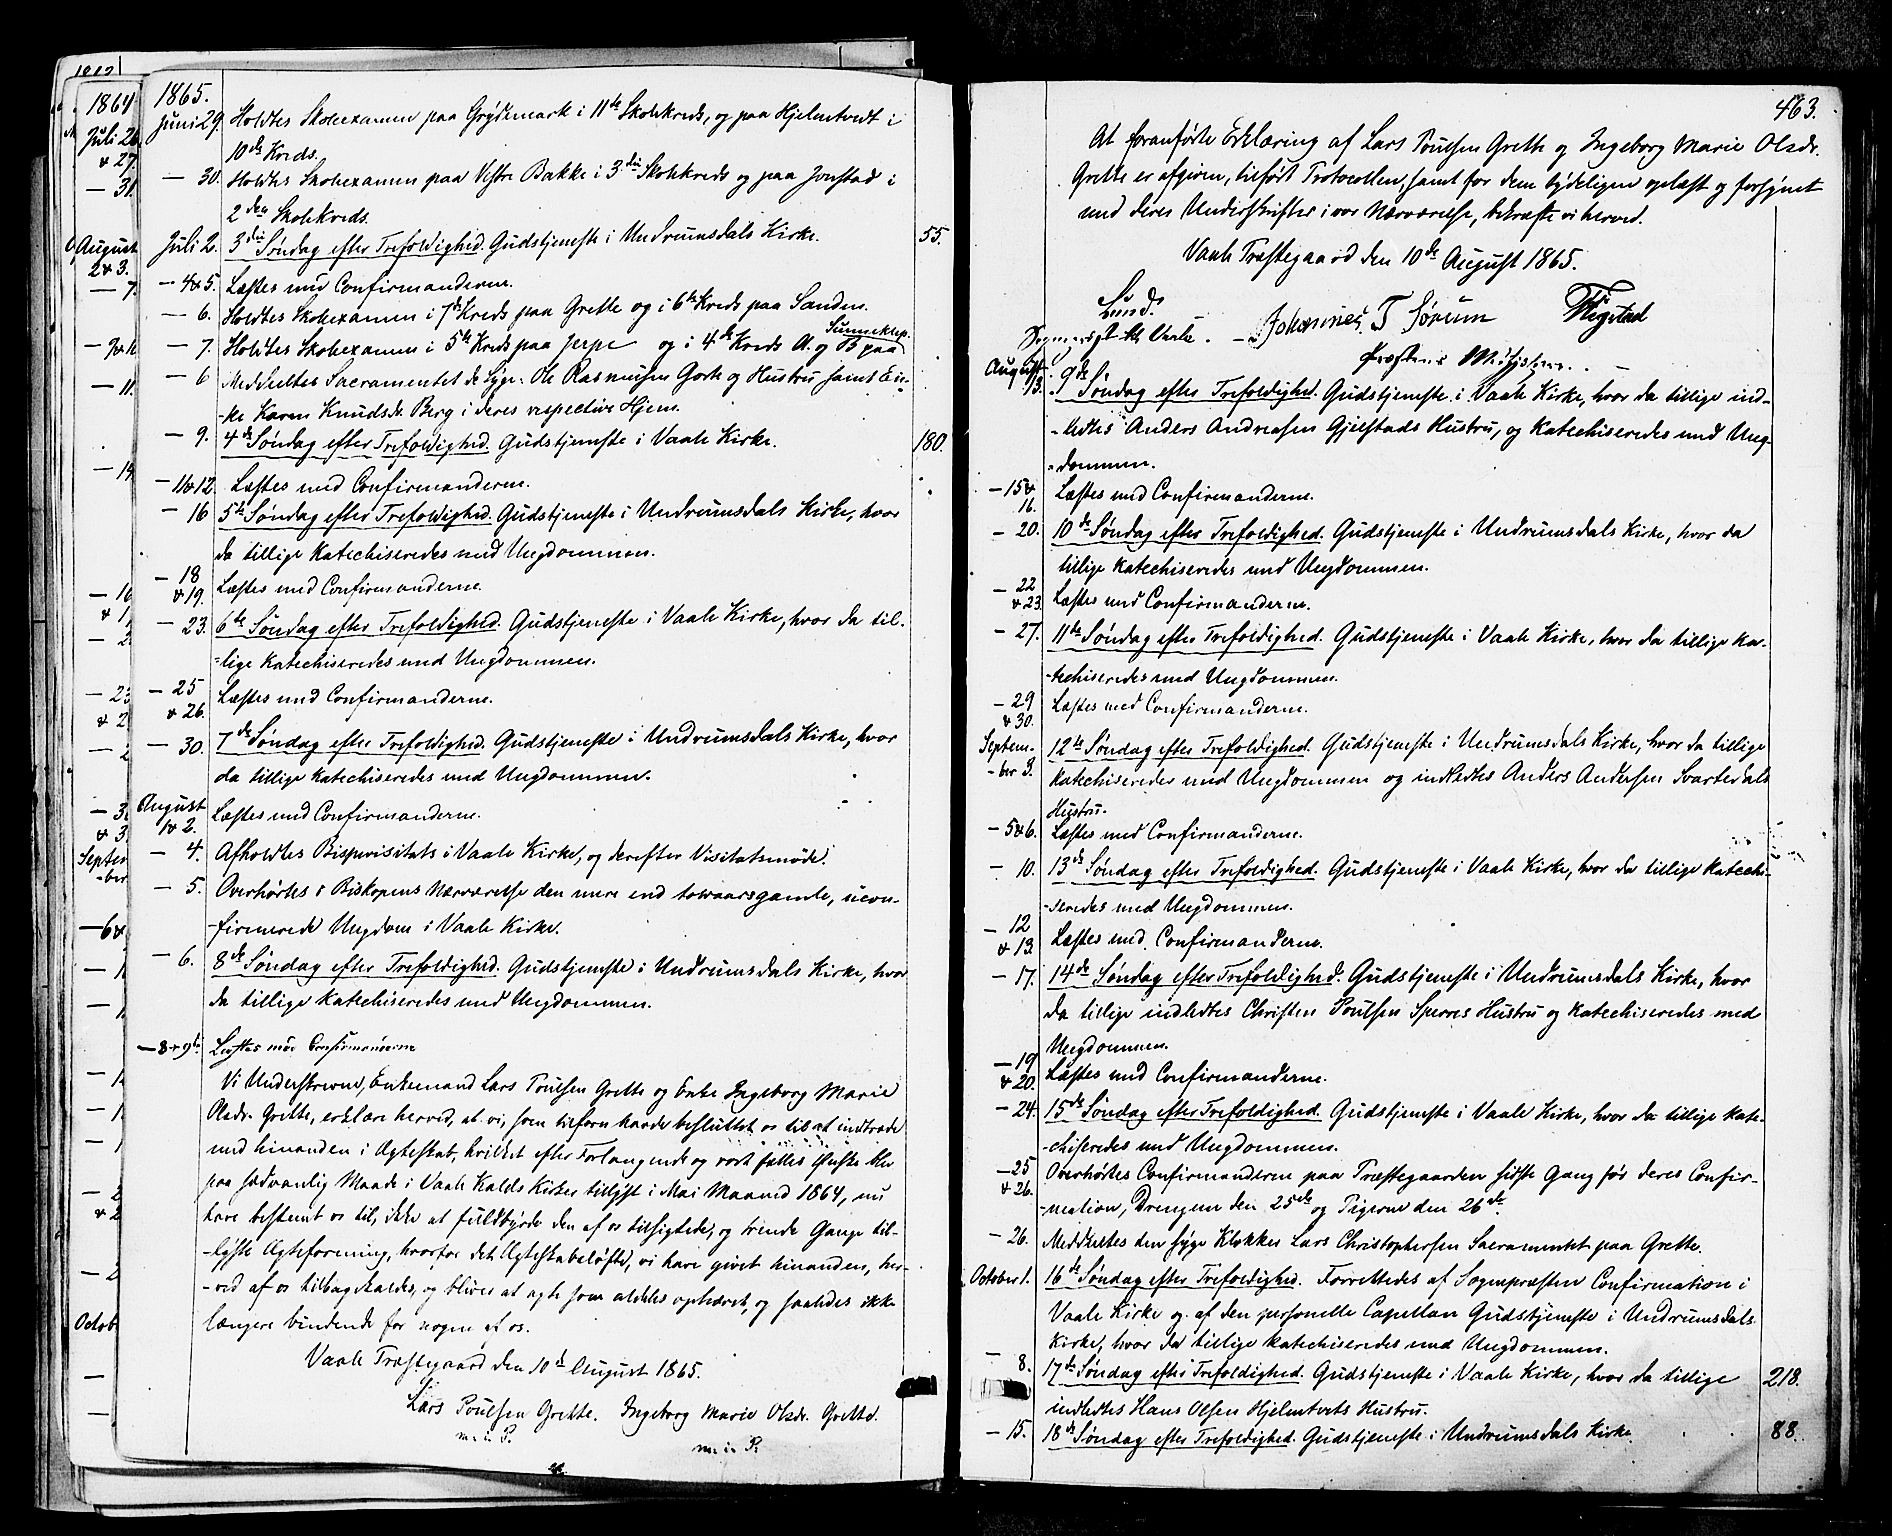 1864
Juli 26
& 27
— 31.
August
2 & 3.
— 7.
— 11.
— 14
— 16
— 23
Septem
-ber
Octob
1865.
Juni 29. Holdtes Skoleexamen paa Grydemark i 11te Skolekreds, og paa Hjelmtvedt i
10de Kreds.
— 30. Holdtes Skoleexamen paa Vestre Bakke i 3die Skolekreds og paa Jonstad i
2den Skolekreds.
Juli 2. 3die Søndag efter Trefoldighed. Gudstjeneste i Undrumsdals Kirke. 55.
— 4 & 5. Læstes med Confirmanderne.
— 6. Holdtes Skoleexamen i 7de Kreds paa Grette og i 6te Kreds paa Sanden.
— 7. Holdtes Skoleexamen i 5te Kreds paa Jerpe og i 4de Kreds A. og B paa
— 6 Meddeeltes Sacramentet de Syge: Ole Rasmusen Gorte og Hustru samt En-
-ke Karen Knudsdr. Berg i deres respective Hjem.
— 9. 4de Søndag efter Trefoldighed. Gudstjeneste i Vaale Kirke. 180.
— 11 & 12. Læstes med Confirmanderne.
— 16 5te Søndag efter Trefoldighed. Gudstjeneste i Undrumsdals Kirke, hvor
da tillige katechiseredes med Ungdommen.
— 18
& 19. Læstes med Confirmanderne.
— 23. 6te Søndag efter Trefoldighed. Gudstjeneste i Vaale Kirke, hvor da til-
-lige katechiseredes med Ungdommen.
— 25
& 26. Læstes med Confirmanderne.
— 30. 7de Søndag efter Trefoldighed. Gudstjeneste i Undrumsdals Kirke, hvor
da tillige katechiseredes med Ungdommen.
August
1 & 2. Læstes med Confirmanderne.
— 4. Afholdtes Bispevisitats i Vaale Kirke, og derefter Visitatsmøde.
— 5. Overhørtes i Biskopens Nærværelse den mere end tolvaarsgamle, ucon-
-firmerede Ungdom i Vaale Kirke.
— 6. 8de Søndag efter Trefoldighed. Gudstjeneste i Undrumsdals Kirke, hvor
da tillige katechiseredes med Ungdommen.
— 8 + 9de Læstes med Confirmanderne
Vi Underskrevne, Enkemand Lars Poulsen Grette og Enke Ingeborg Marie
Olsdr. Grette, erklære herved, at vi, som tilforn havde besluttet os til at indtræde
med hinanden i Ægteskab, hvilket efter Forlangende og vort fælles Ønske blev
paa sædvanlig Maade i Vaale Kalds Kirker tillyst i Mai Maaned 1864, nu
have bestemt os til, ikke at fuldbyrde den af os tilsigtede, og trende Gange til-
-lyste Ægteforening, hvorfor det Ægteskabsløfte, vi have givet hinanden, her-
-ved af os tilbagekaldes, og bliver at agte som aldeles ophævet, og saaledes ikke
længere bindende for nogen af os.
Vaale Præstegaard den 10de August 1865.
Lars Poulsen Grette. Ingeborg Marie Olsdr. Grette.
m. i. P. m. i. P.
463.
At foranførte Erklæring af Lars Poulsen Grette og Ingeborg Marie Olsdr.
Grette er afgiven, tilført Protocollen, samt for dem tydeligen oplæst og forsynet
med deres Underskrifter i vor Nærværelse, bekræfte vi herved.
Vaale Præstegaard den 10de August 1865.
Lund. Johannes T Sørum
Sognepræst til Vaale.
Præstens Medhjelpere.
August
13. 9de Søndag efter Trefoldighed. Gudstjeneste i Vaale Kirke, hvor da tillige ind-
-ledtes Anders Andreasen Gjelstads Hustru, og katechiseredes med Ung-
-dommen.
— 15 &
16. Læstes med Confirmanderne.
— 20. 10de Søndag efter Trefoldighed. Gudstjeneste i Undrumsdals Kirke, hvor da
tillige katechiseredes med Ungdommen.
— 22
& 23. Læstes med Confirmanderne.
— 27. 11te Søndag efter Trefoldighed. Gudstjeneste i Vaale Kirke, hvor da tillige ka-
-techiseredes med Ungdommen.
— 29
& 30. Læstes med Confirmanderne.
Septem-
-ber 3. 12te Søndag efter Trefoldighed. Gudstjeneste i Undrumsdals Kirke, hvor da tillige
katechiseredes med Ungdommen og indledtes Anders Andersen Svartedals
Hustru.
— 5 & 6. Læstes med Confirmanderne.
— 10. 13de Søndag efter Trefoldighed. Gudstjeneste i Vaale Kirke, hvor da tillige katechi-
-seredes med Ungdommen.
— 12
& 13. Læstes med Confirmanderne.
— 17. 14de Søndag efter Trefoldighed. Gudstjeneste i Undrumsdals Kirke, hvor
da tillige indledtes Christen Poulsen Sperres Hustru og katechiseredes med
Ungdommen.
— 19
& 20. Læstes med Confirmanderne.
— 24. 15de Søndag efter Trefoldighed. Gudstjeneste i Vaale Kirke, hvor da tillige kate-
-chiseredes med Ungdommen.
— 25
& 26. Overhørtes Confirmanderne paa Præstegaarden sidste Gang før deres Confir-
-mation, Drengene den 25de og Pigerne den 26de.
— 26. Meddeeltes den syge Klokker Lars Christophersen Sacramentet paa Grette.
October 1. 16de Søndag efter Trefoldighed. Forrettedes af Sognepræsten Confirmation i
Vaale Kirke og af den personelle Capellan Gudstjeneste i Undrumsdals
Kirke, hvor da tillige katechiseredes med Ungdommen.
— 8. 17de Søndag efter Trefoldighed. Gudstjeneste i Vaale Kirke, hvor da tillige 218.
indledtes Hans Olsen Hjelmtvets Hustru.
— 15. 18de Søndag efter Trefoldighed. Gudstjeneste i Undrumsdals Kirke. 88.